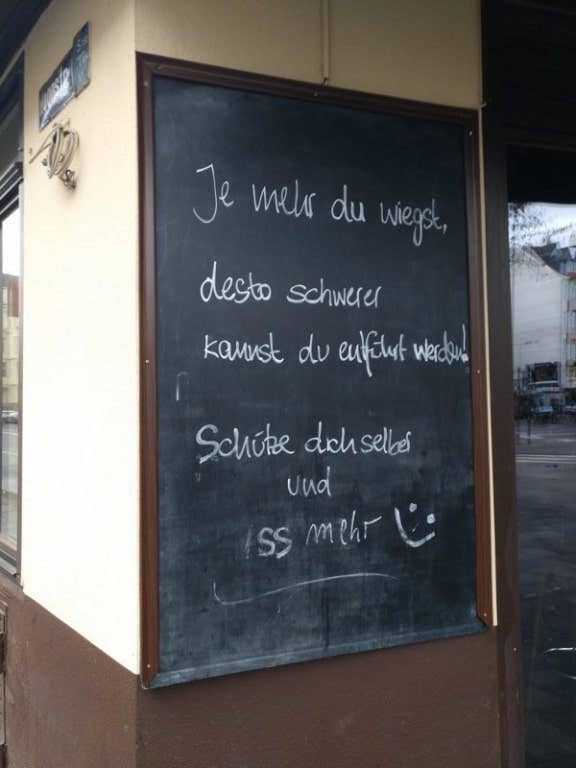 Je mehr du wiegst,
desto schwerer
kannst du entführt werden!
Schütze dich selber
und
iss mehr